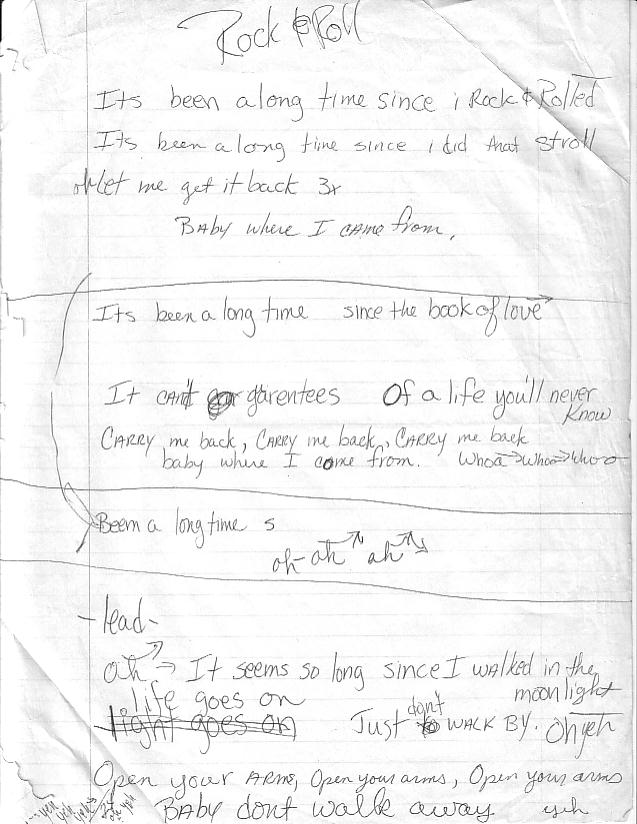 Rock & Roll
Its been a long time since i Rock & Rolled
Its been a long time since i did that stroll
oh let me get it back 3x
BABy where I CAMe from.
Its been a long time since the book of love
It CAN't garentees Of a life you'll never
Know
CARRY me back, CARRY me back, CARRY me back
baby where I come from. Whoa → whoa → whoa
Beem a long time s
oh- oh ah
- lead -
oh → It seems so long since I WALKed in the
moonlight
life goes on
light goes on Just don't WALK BY. Oh yeh
Open your ARMS, Open your arms, Open your arms
BABY dont walk away yeh